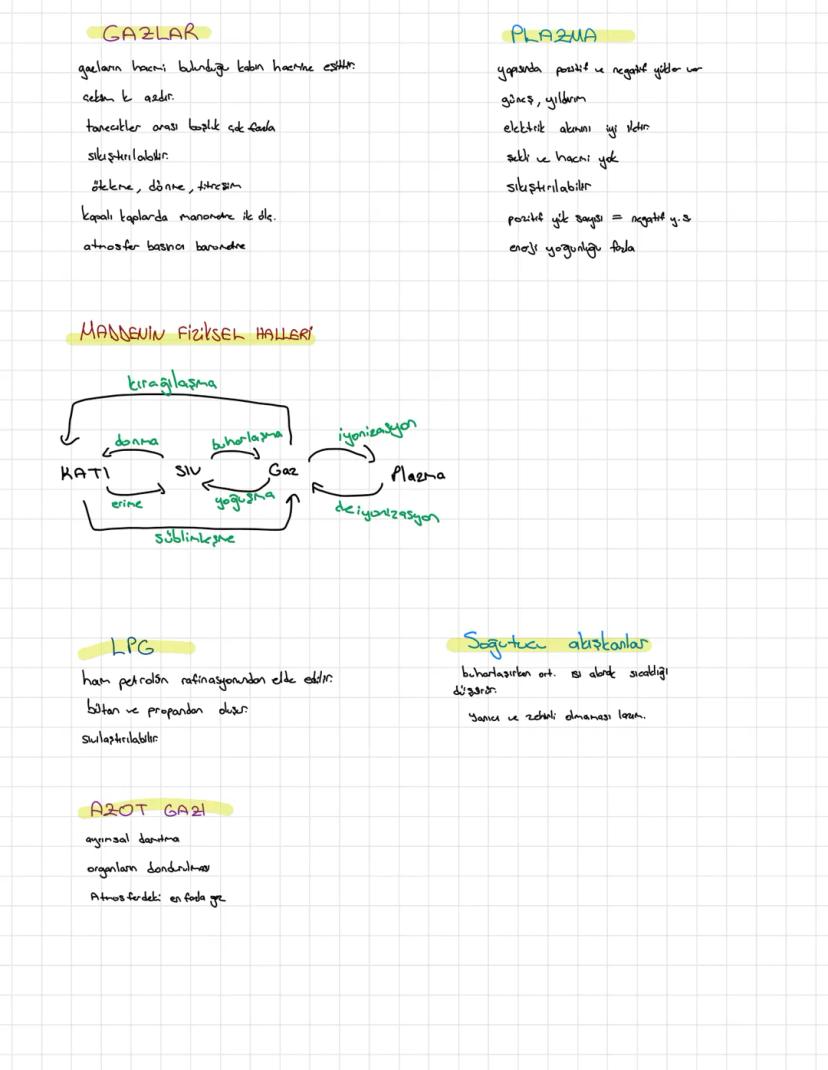 GAZLAR
gazların hacmi bulunduğu kabın hacmine eşittir.
çekim k azdır.
tanecikler arası boşluk çok fazla
sıkıştırılabilir.
öteleme, dönme, titreşim
kapalı kaplarda manometre ile ölç.
atmosfer basıncı barometre
PLAZMA
yapısında pozitif ve negatif yükler var
güneş, yıldırım
elektrik akımını iyi iletir.
şekli ve hacmi yok
sıkıştırılabilir
pozitif yük sayısı = negatif y.s
enerji yoğunluğu fazla
MADDENİN FİZİKSEL HALLERİ
kırağılaşma
donma
buharlaşma
iyonizasyon
KATI
SIVI
Gaz
Plazma
erime
yoğuşma
deiyonizasyon
süblimleşme
LPG
ham petrolün rafinasyonundan elde edilir.
bütan ve propandan oluşur.
sıvılaştırılabilir
Soğutucu akışkanlar
buharlaşırken ort. ısı alarak sıcaklığı
düşürür.
yanıcı ve zehirli olmaması lazım.
AZOT GAZI
ayrımsal damıtma
organların dondurulması
Atmosferdeki en fazla gaz